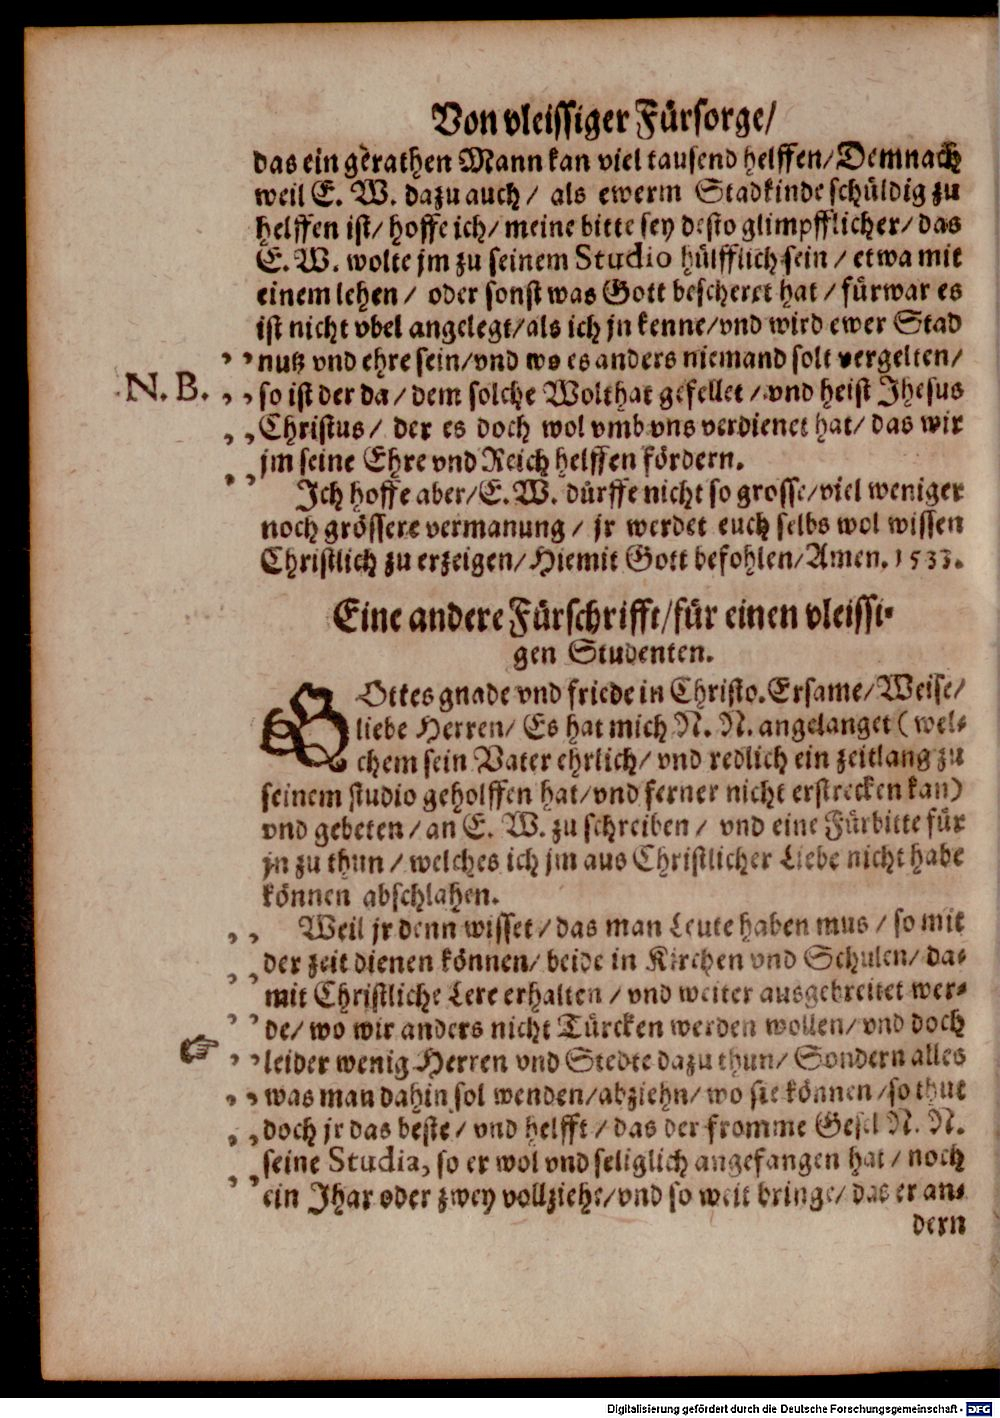 Von vleissiger Fürsorge/
das ein gerathen Mann kan viel tausend helffen/Demnach
weil E. W. dazu auch/ als ewerm Stadkinde schüldig zu
helffen ist/ hoffe ich/ meine bitte sey desto glimpfflicher/ das
E. W. wolte jm zu seinem Studio hülfflich sein/ etwa mit
einem lehen/ oder sonst was Gott bescheret hat/ fürwar es
ist nicht vbel angelegt/als ich jn kenne/vnd wird ewer Stad
,, nutz vnd ehre sein/vnd wo es anders niemand solt vergelten/
N. B. ,, so ist der da/ dem solche Wolthat gefellet/ vnd heist Jhesus
,, Christus/ der es doch wol vmb vns verdienet hat/ das wir
,, jm seine Ehre vnd Reich helffen fördern.
Ich hoffe aber/E. W. dürffe nicht so grosse/viel weniger
noch grössere vermanung/ jr werdet euch selbs wol wissen
Christlich zu erzeigen/Hiemit Gott befohlen/Amen. 1533.
Eine andere Fürschrifft/für einen vleissi-
gen Studenten.
GOttes gnade vnd friede in Christo. Ersame/Weise/
liebe Herren/ Es hat mich N. N. angelanget (wel-
chem sein Vater ehrlich/ vnd redlich ein zeitlang zu
seinem studio geholffen hat/vnd ferner nicht erstrecken kan)
vnd gebeten/an E. W. zu schreiben/ vnd eine Fürbitte für
jn zu thun/welches ich jm aus Christlicher Liebe nicht habe
können abschlahen.
,, Weil jr denn wisset/das man Leute haben mus/so mit
,, der zeit dienen können/ beide in Kirchen vnd Schulen/ da-
mit Christliche Lere erhalten/vnd weiter ausgebreitet wer-
,, de/wo wir anders nicht Türcken werden wollen/vnd doch
☞ ,, leider wenig Herren vnd Stedte dazu thun/Sondern alles
,, was man dahin sol wenden/abziehn/wo sie können/so thut
,, doch jr das beste/ vnd helfft/das der fromme Gesel N. N.
,, seine Studia, so er wol vnd seliglich angefangen hat/ noch
ein Jhar oder zwey vollziehe/vnd so weit bringe/das er an-
dern
Digitalisierung gefördert durch die Deutsche Forschungsgemeinschaft - DFG